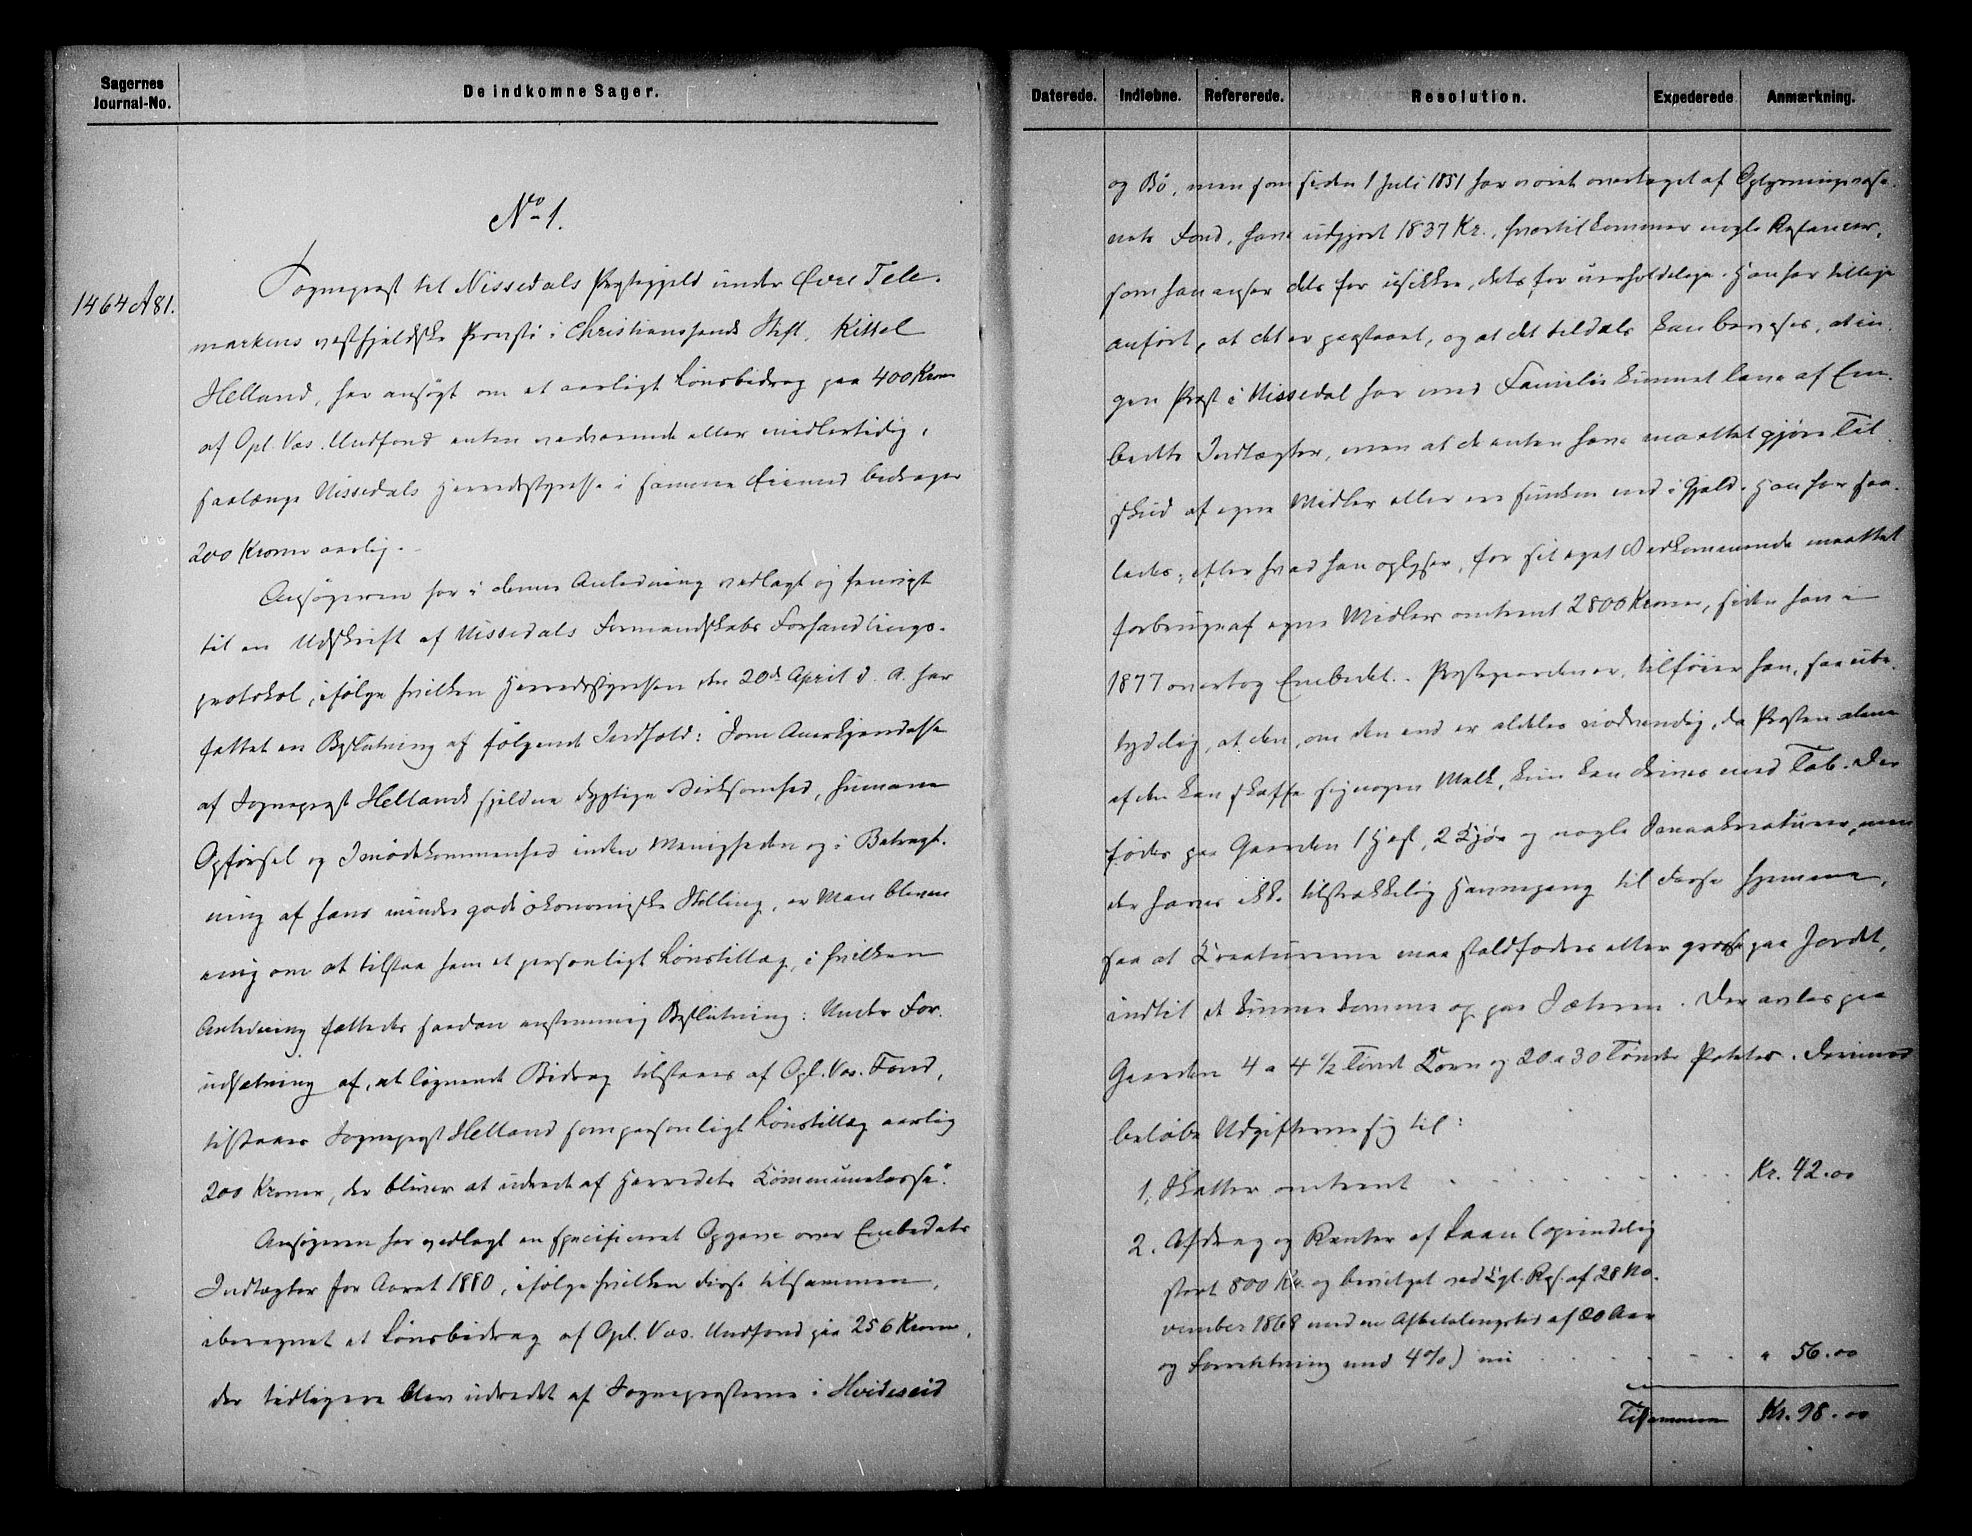 Sagernes
Journal-No.
De indkomne Sager.
No 1.
1464 A 81.
Sognepræst til Nissedals Præstegjeld under Øvre Tele-
markens vestfjeldske Provsti i Christianssands Stift, Kittel
Helland, har ansøgt om et aarligt Lønsbidrag paa 400 Kroner
af Opl. Væs. Undfond enten vedvarende eller midlertidig,
saalænge Nissedals Herredsstyrelse i samme Øiemed bidrager
200 Kroner aarlig.
Ansøgeren har i denne Anledning vedlagt og henvist
til en Udskrift af Nissedals Formandskabs Forhandlings-
protokol, ifølge hvilken Herredsstyrelsen den 20de April d. A. har
fattet en Beslutning af følgende Indhold: "Som Anerkjendelse
af Sognepræst Hellands sjeldne dygtige Virksomhed, humane
Opførsel og Imødekommenhed inden Menigheden og i Betragt-
ning af hans mindre gode økonomiske Stilling, er Man bleven
enig om at tilstaa ham et personligt Lønstillæg, i hvilken
Anledning fattedes saadan enstemmig Beslutning: Under For-
udsætning af, at lignende Bidrag tilstaaes af Opl. Væs. Fond,
tilstaaes Sognepræst Helland som personligt Lønstillæg aarlig
200 Kroner, der bliver at udrede af Herredets Kommunekasse".
Ansøgeren har vedlagt en specificeret Opgave over Embedets
Indtægter for Aaret 1880, ifølge hvilken disse tilsammen,
iberegnet et Lønsbidrag af Opl. Væs. Undfond paa 256 Kroner,
der tidligere blev udredet af Sognepræsterne i Hvideseid
Daterede.
Indløbne.
Refererede.
Resolution.
Expederede
Anmærkning.
og Bø, men som siden 1 Juli 1851 har været overtaget af Oplysningsvæse-
nets Fond, have udgjort 1837 Kr., hvortil kommer nogle Restancer,
som han anser dels for usikre, dels for uerholdelige. Han har tillige
anført, at det er paastaaet, og at det tildels kan bevises, at in-
gen Præst i Nissedal har med Familie kunnet leve af Em-
bedets Indtægter, men at de enten have maattet gjøre Til-
skud af egne Midler eller ere sunkne ned i Gjeld. Han har saa-
ledes, efter hvad han oplyser, for sit eget Vedkommende maattet
forbruge af egne Midler omtrent 2800 Kroner, siden han i
1877 overtog Embedet. Præstegaarden er, tilføier han, saa ube-
tydelig, at den, om den end er aldeles nødvendig, da Præsten alene
af den kan skaffe sig nogen Melk, kun kan drives med Tab. Der
fødes paa Gaarden 1 Hest, 2 Kjør og nogle Smaakreaturer, men
der haves ikke tilstrækkelig Havnegang til disse hjemme,
saa at Kreaturerne maa staldfodres eller græsse paa Jordet,
indtil de kunne komme op paa Sæteren. Der avles paa
Gaarden 4 a 4 1/2 Tønde Korn og 20 a 30 Tønder Poteter. Derimod
beløbe Udgifterne sig til:
1. Skatter omtrent . . . . . . . Kr. 42.00
2. Afdrag og Renter af Laan (oprindelig
stort 800 Kr. og bevilget ved Kgl. Res. af 28 No-
vember 1868 med en Afbetalingstid af 20 Aar
og Forrentning med 4%) nu . . . . " 56.00
Tilsammen Kr. 98.00